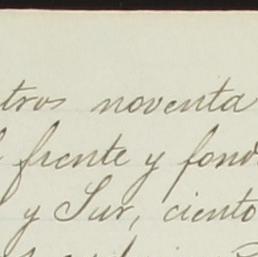 tros noventa
frente y fond
y Sur, ciento